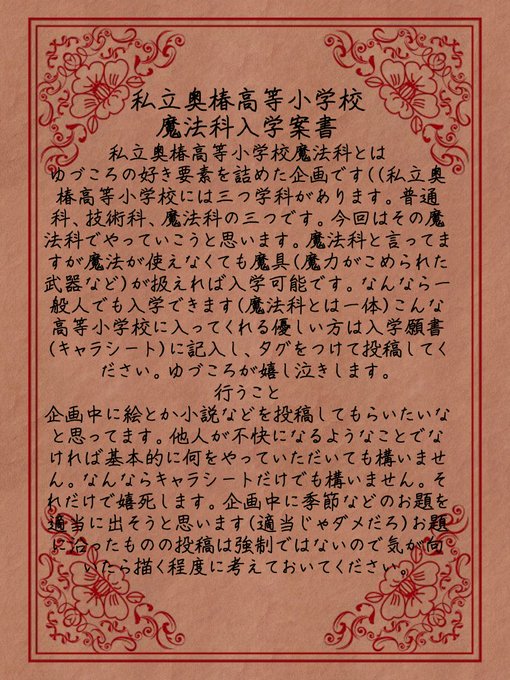 私立奥椿高等小学校
魔法科入学案書
私立奥椿高等小学校魔法科とは
ゆづころの好き要素を詰めた企画です((私立奥
椿高等小学校には三つ学科があります。普通
科、技術科、魔法科の三つです。今回はその魔
法科でやっていこうと思います。魔法科と言ってま
すが魔法が使えなくても魔具(魔力がこめられた
武器など)が扱えれば入学可能です。なんなら一
般人でも入学できます(魔法科とは一体)こんな
高等小学校に入ってくれる優しい方は入学願書
(キャラシート)に記入し、タグをつけて投稿してく
ださい。ゆづころが嬉し泣きします。
行うこと
企画中に絵とか小説などを投稿してもらいたいな
と思ってます。他人が不快になるようなことでな
ければ基本的に何をやっていただいても構いませ
ん。なんならキャラシートだけでも構いません。そ
れだけで嬉死します。企画中に季節などのお題を
適当に出そうと思います(適当じゃダメだろ)お題
に沿ったものの投稿は強制ではないので気が向
いたら描く程度に考えておいてください。